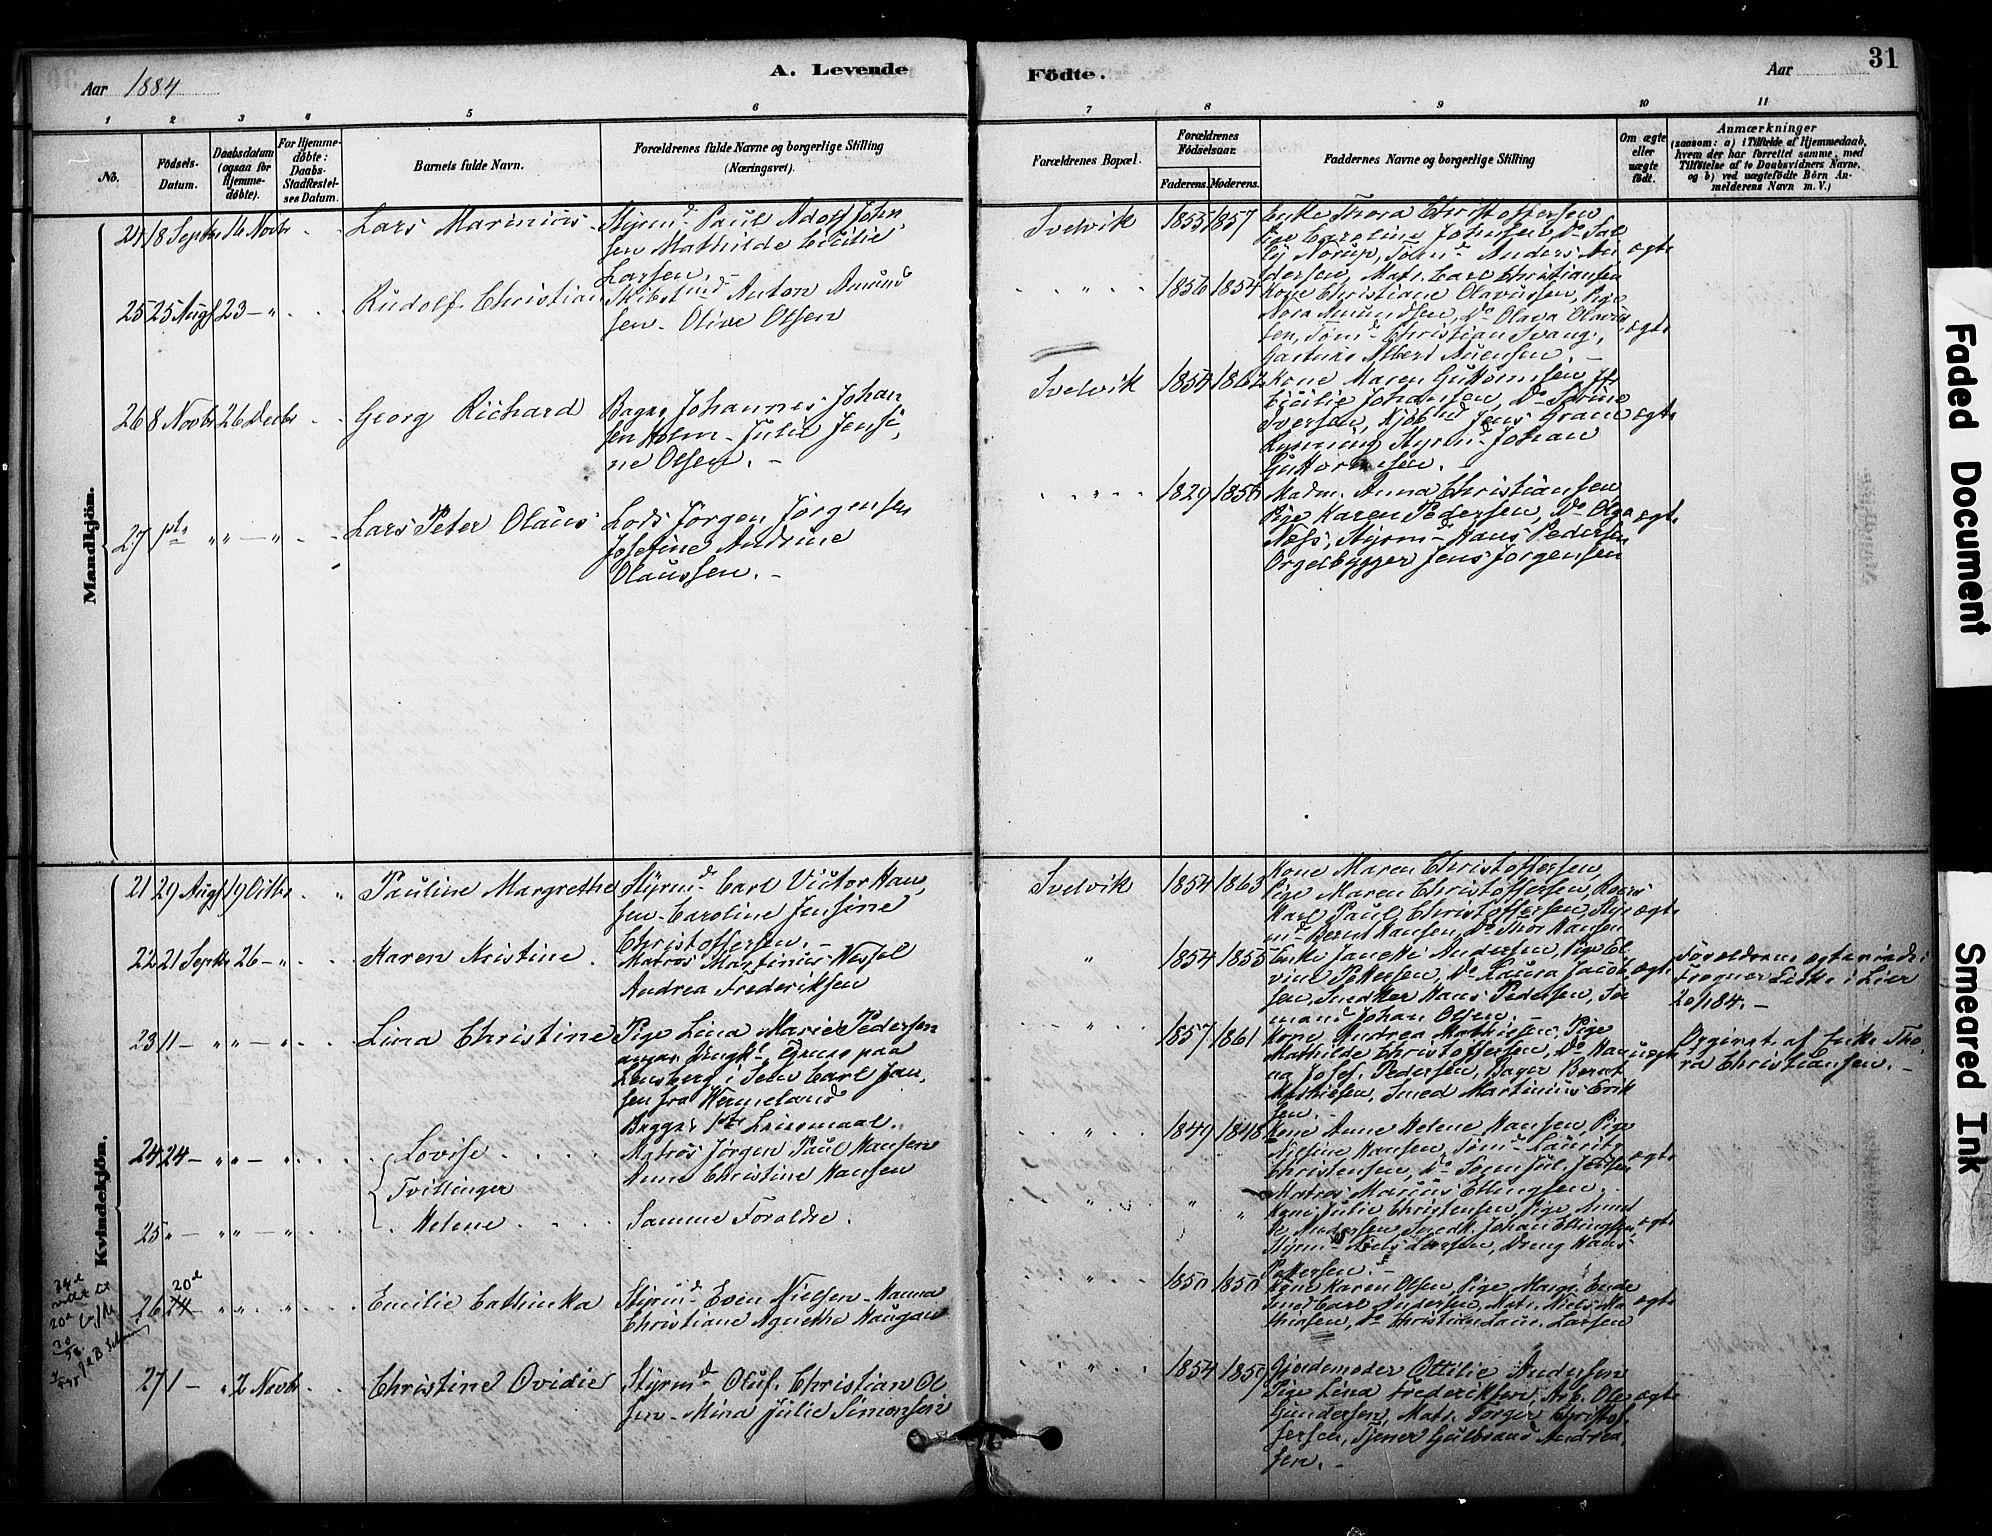 31
Aar 1884
A. Levende
Födte.
Aar
1 2 3 4 5 6 7 8 9 10 11
No.
Födsels-
Datum.
Daabsdatum
(ogsaa for
Hjemme-
döbte).
For Hjemme-
döbte:
Daabs-
Stadfæstel-
ses Datum.
Barnets fulde Navn.
Forældrenes fulde Navne og borgerlige Stilling
(Næringsvei).
Forældrenes Bopæl.
Forældrenes
Födselsaar.
Faderens. Moderens.
Faddernes Navne og borgerlige Stilling
Om ægte
eller
uægte
födt.
Anmærkninger
(saasom: a) i Tilfælde af Hjemmedaab,
hvem der har forrettet samme, med
Tilföielse af to Daabsvidners Navne,
og b) ved uægtefödte Börn An-
melderens Navn m. V.)
Mandkjön.
24 18 Septbr 16 Novbr
Lars Marinius
Styrmd Paul Adolf John
sen Mathilde Cecilie
Larsen.
Svelvik
1855 1857
Enke Thora Christoffersen
Pige Caroline Johnsen, Do
Tömd Anders An
dersen, Matr. Carl Christiansen
ægte
25 25 Augs 23 — "
Rudolf Christian
Skibstmd Anton Amund
sen - Olive Olsen
"
1856 1854
Kone Christiane Olavussen, Pige
Nora Amundsen, Do Olava Olavus
sen, Tömd Christian Svang,
Albert
ægte
26 8 Novbr 26 Decbr
Georg Richard
Bager Johannes Johan
sen Holm - Julie Jensi,
ne Olsen. -
Svelvik
1854 1862
Kone Maren Guttormsen, Jfr
Cicilie Johansen, Do
Iversen, Kjöbmd Jens Gram
Rynning Styrmd Johan
Guttormsen. -
ægte
27 " " — "
Lars Peter Olaus
Lods Jörgen Jörgensen
Josefine Andrine
Olaussen. -
"
1829 1856
Madm. Anna Christiansen,
Pige Karen Pedersen, Do Olga
Næss, Styrmd Hans Pedersen
Orgelbygger Jens Jörgensen
ægte
Kvindekjön.
21 29 Augs 19 Octbr
Pauline Margrethe
Styrmd Carl Victor Han,
sen - Caroline Jensine
Christoffersen. -
Svelvik
1854 1863
Kone Maren Christoffersen,
Pige Maren Christoffersen,
Karl Paul Christoffersen, Styr
md Bernt Hansen, Do Thor Hansen
ægte
22 21 Septbr 26 — "
Karen Kristine
Matros Martinus Wessel
Andrea Frederiksen
"
1854 1855
Enke Andersen, Pige El
vine Pettersen, Do Laura Jacob
sen, Snedker Hans Pedersen, Sö
mand Johan Olsen. -
ægte
Forældrene ægteviede i
Frogner Kirke i Lier
184. -
23 11 — " " — "
Lina Christine
Pige Lina Marie Pedersen
paa
i Sem Carl Jan,
sen fra Wermeland
Begges 1ste Leiermaal.
"
1857 1861
Kone Andrea Mathisen. Pige
Mathilde Christoffersen, Do Han
na Josef. Pedersen, Bager Bernt
Mathisen, Smed Martinius Erik
sen. -
uægte
Angivet af Enke Tho
ra Christiansen. -
24 24 — " " — "
Lovise
Matros Jörgen Paul Hansen
Anne Christine Hansen
"
1849 1848
Kone Anne Helene Hansen, Pige
Nicoline Hansen, Tömd Laurits
Christensen, Do
Matros Marius Ellingsen.
ægte
Tvillinger
25 " — " " — "
Helene
Samme Foreldre.
" " "
Kone Julie Christensen, Pige
Andersen Snedk. Johan Ellingsen,
Styrmd Niels Larsen, Dreng Hans
Pettersen.
ægte
26 24 20de — " " — "
Emilie Cathinka
Styrmd Even Nielsen - Hanna
Christiane Agnethe Haugan
"
1850 1850
Kone Karen Olsen, Pige
Smed Carl Andersen, Matr. Niels Ma
thisen, Do Christian Laur. Larsen
ægte
27 1 — " 2 Novbr
Christine Ovidie
Styrmd Oluf Christian Ol
sen - Mina Julie Simonsen
"
1854 1859
Gjordemoder Ottilie Andersen
Pige Lina Frederiksen, Arb. Ole
Gundersen, Matr. Torger Christof
fersen, Tjener Gulbrand Andrea
sen. -
ægte
Faded Document
Smeared Ink